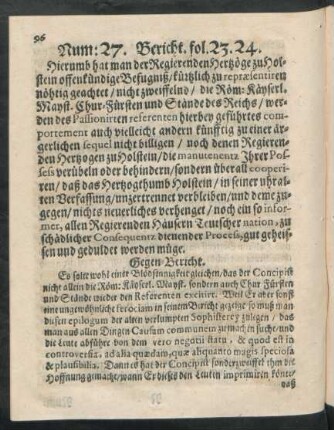 96
Num: 27. Bericht. fol. 23. 24.
Hierumb hat man der Regierenden Hertzöge zu Hol-
stein offenkündige Befugniß / kürtzlich zu repræsentiren
nöhtig geachtet / nicht zweiffelnd / die Röm: Käyserl.
Mayst. Chur-Fürsten und Stände des Reichs / wer-
den des Passionirten referenten hierbey geführtes com-
portement auch vielleicht andern künfftig zu einer är-
gerlichen sequel nicht billigen / noch denen Regieren-
den Hertzogen zu Holstein / die manutenentz Ihrer Pos-
sess verübeln oder behindern / sondern überall cooperi-
ren / daß das Hertzogthumb Holstein / in seiner uhral-
ten Verfassung / unzertrennet verbleiben / und deme zu-
gegen / nichts neuerliches verhenget / noch ein so infor-
mer, allen Regierenden Häusern Teutscher nation, zu
schädlicher Consequentz dienender Process, gut geheis-
sen und geduldet werden müge.
Gegen-Bericht.
Es solte wohl einer Blödsinnigkeit gleichen / das der Concipist
nicht allein die Röm: Käyserl. Mayst. sondern auch Chur Fürsten
und Stände wieder den Referenten exciiret. Weil Er aber sonst
eine ungewöhnliche ferociam in seinem Bericht gezeiget / so muß man
diesen epilogum der alten verlumpten Sophisterey zulegen / das
man aus allen Dingen Causam communem zu machen suche / und
die Leute abführe von dem vero negotii statu, & quod est in
controversia, ad alia quædam, quæ aliquanto magis speciosa
& plausibilia. Dann es hat der Concipist sonder zweiffel ihm die
Hoffnung gemacht / wann Er dieses den Leuten imprimiren könte /
daß